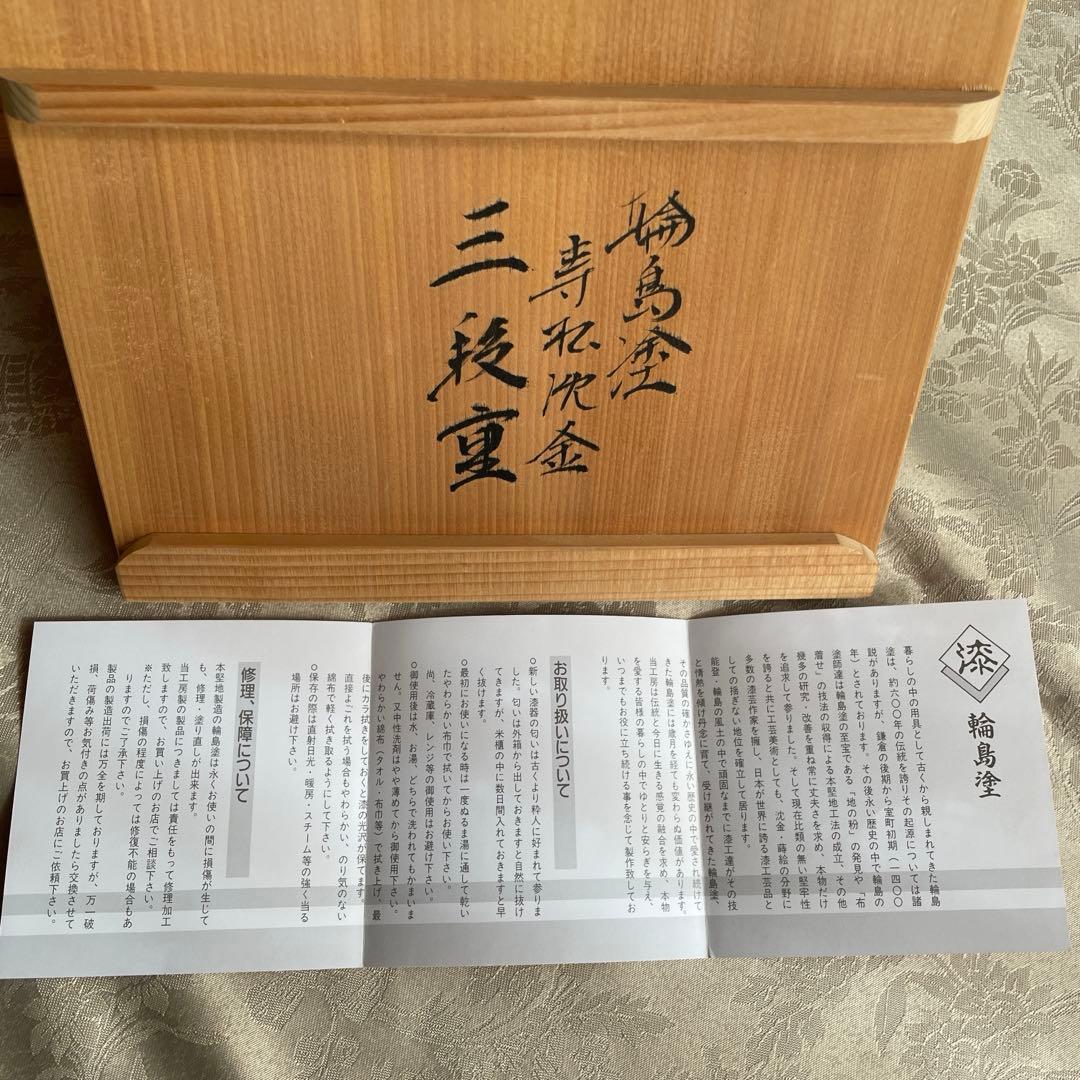 輪島塗
寿松沈金
三段重
漆
輪島塗
暮らしの中の用具として古くから親しまれてきた輪島
塗は、約六〇〇年の伝統を誇りその起源については諸
説がありますが、鎌倉の後期から室町初期(一四〇〇
年)とされております。その後永い歴史の中で輪島の
塗師達は輪島塗の至宝である「地の粉」の発見や「布
着せ」の技法の収得による本堅地工法の成立、その他
幾多の研究・改善を重ね常に工夫さを求め、本物だけ
を追求して参りました。そして現在比類の無い堅牢性
を誇ると共に工芸美術としても、沈金・蒔絵の分野に
多数の漆芸作家を擁し、日本が世界に誇る漆工芸品と
しての揺ぎない地位を確立して居ります。
能登・輪島の風土の中で頑固なまでに漆工達がその技
と情熱を傾け丹念に育て、受け継がれてきた輪島塗、
その品質の確かさゆえに永い歴史の中で愛され続けて
きた輪島塗には歳月を経ても変わらぬ価値があります。
当工房は伝統と今日に生きる感覚の融合を求め、本物
を愛する皆様の暮らしの中でゆとりと安らぎを与え、
いつまでもお役に立ち続ける事を念じて製作致してお
ります。
お取り扱いについて
○新しい漆器の匂いは古くより粋人に好まれて参りま
した。匂いは外箱から出しておきますと自然に抜け
てきますが、米櫃の中に数日間入れておきますと早
く抜けます。
○最初にお使いになる時は一度ぬるま湯に通して乾い
たやわらかい布巾で拭いてからお使い下さい。
尚、冷蔵庫、レンジ等の御使用はお避け下さい。
○御使用後は水、お湯、どちらで洗われてもかまいま
せん。又中性洗剤はやや薄めてから御使用下さい。
やわらかい綿布(タオル・布巾等)で拭き上げ、最
後にカラ拭きをしておくと漆の光沢が保てます。
直接よごれを拭う場合もやわらかい、のり気のない
綿布で軽く拭き取るようにして下さい。
○保存の際は直射日光・暖房・スチーム等の強く当る
場所はお避け下さい。
修理、保障について
本堅地製造の輪島塗は永くお使いの間に損傷が生じて
も、修理・塗り直しが出来ます。
当工房製の製品につきましては責任をもって修理加工
致しますので、お買い上げのお店でご相談下さい。
※ただし、損傷の程度によっては修復不能の場合もあ
りますのでご了承下さい。
製品の製造出荷には万全を期しておりますが、万一破
損、荷傷み等お気付きの点がありましたら交換させて
いただきますので、お買上げのお店にご依頼下さい。